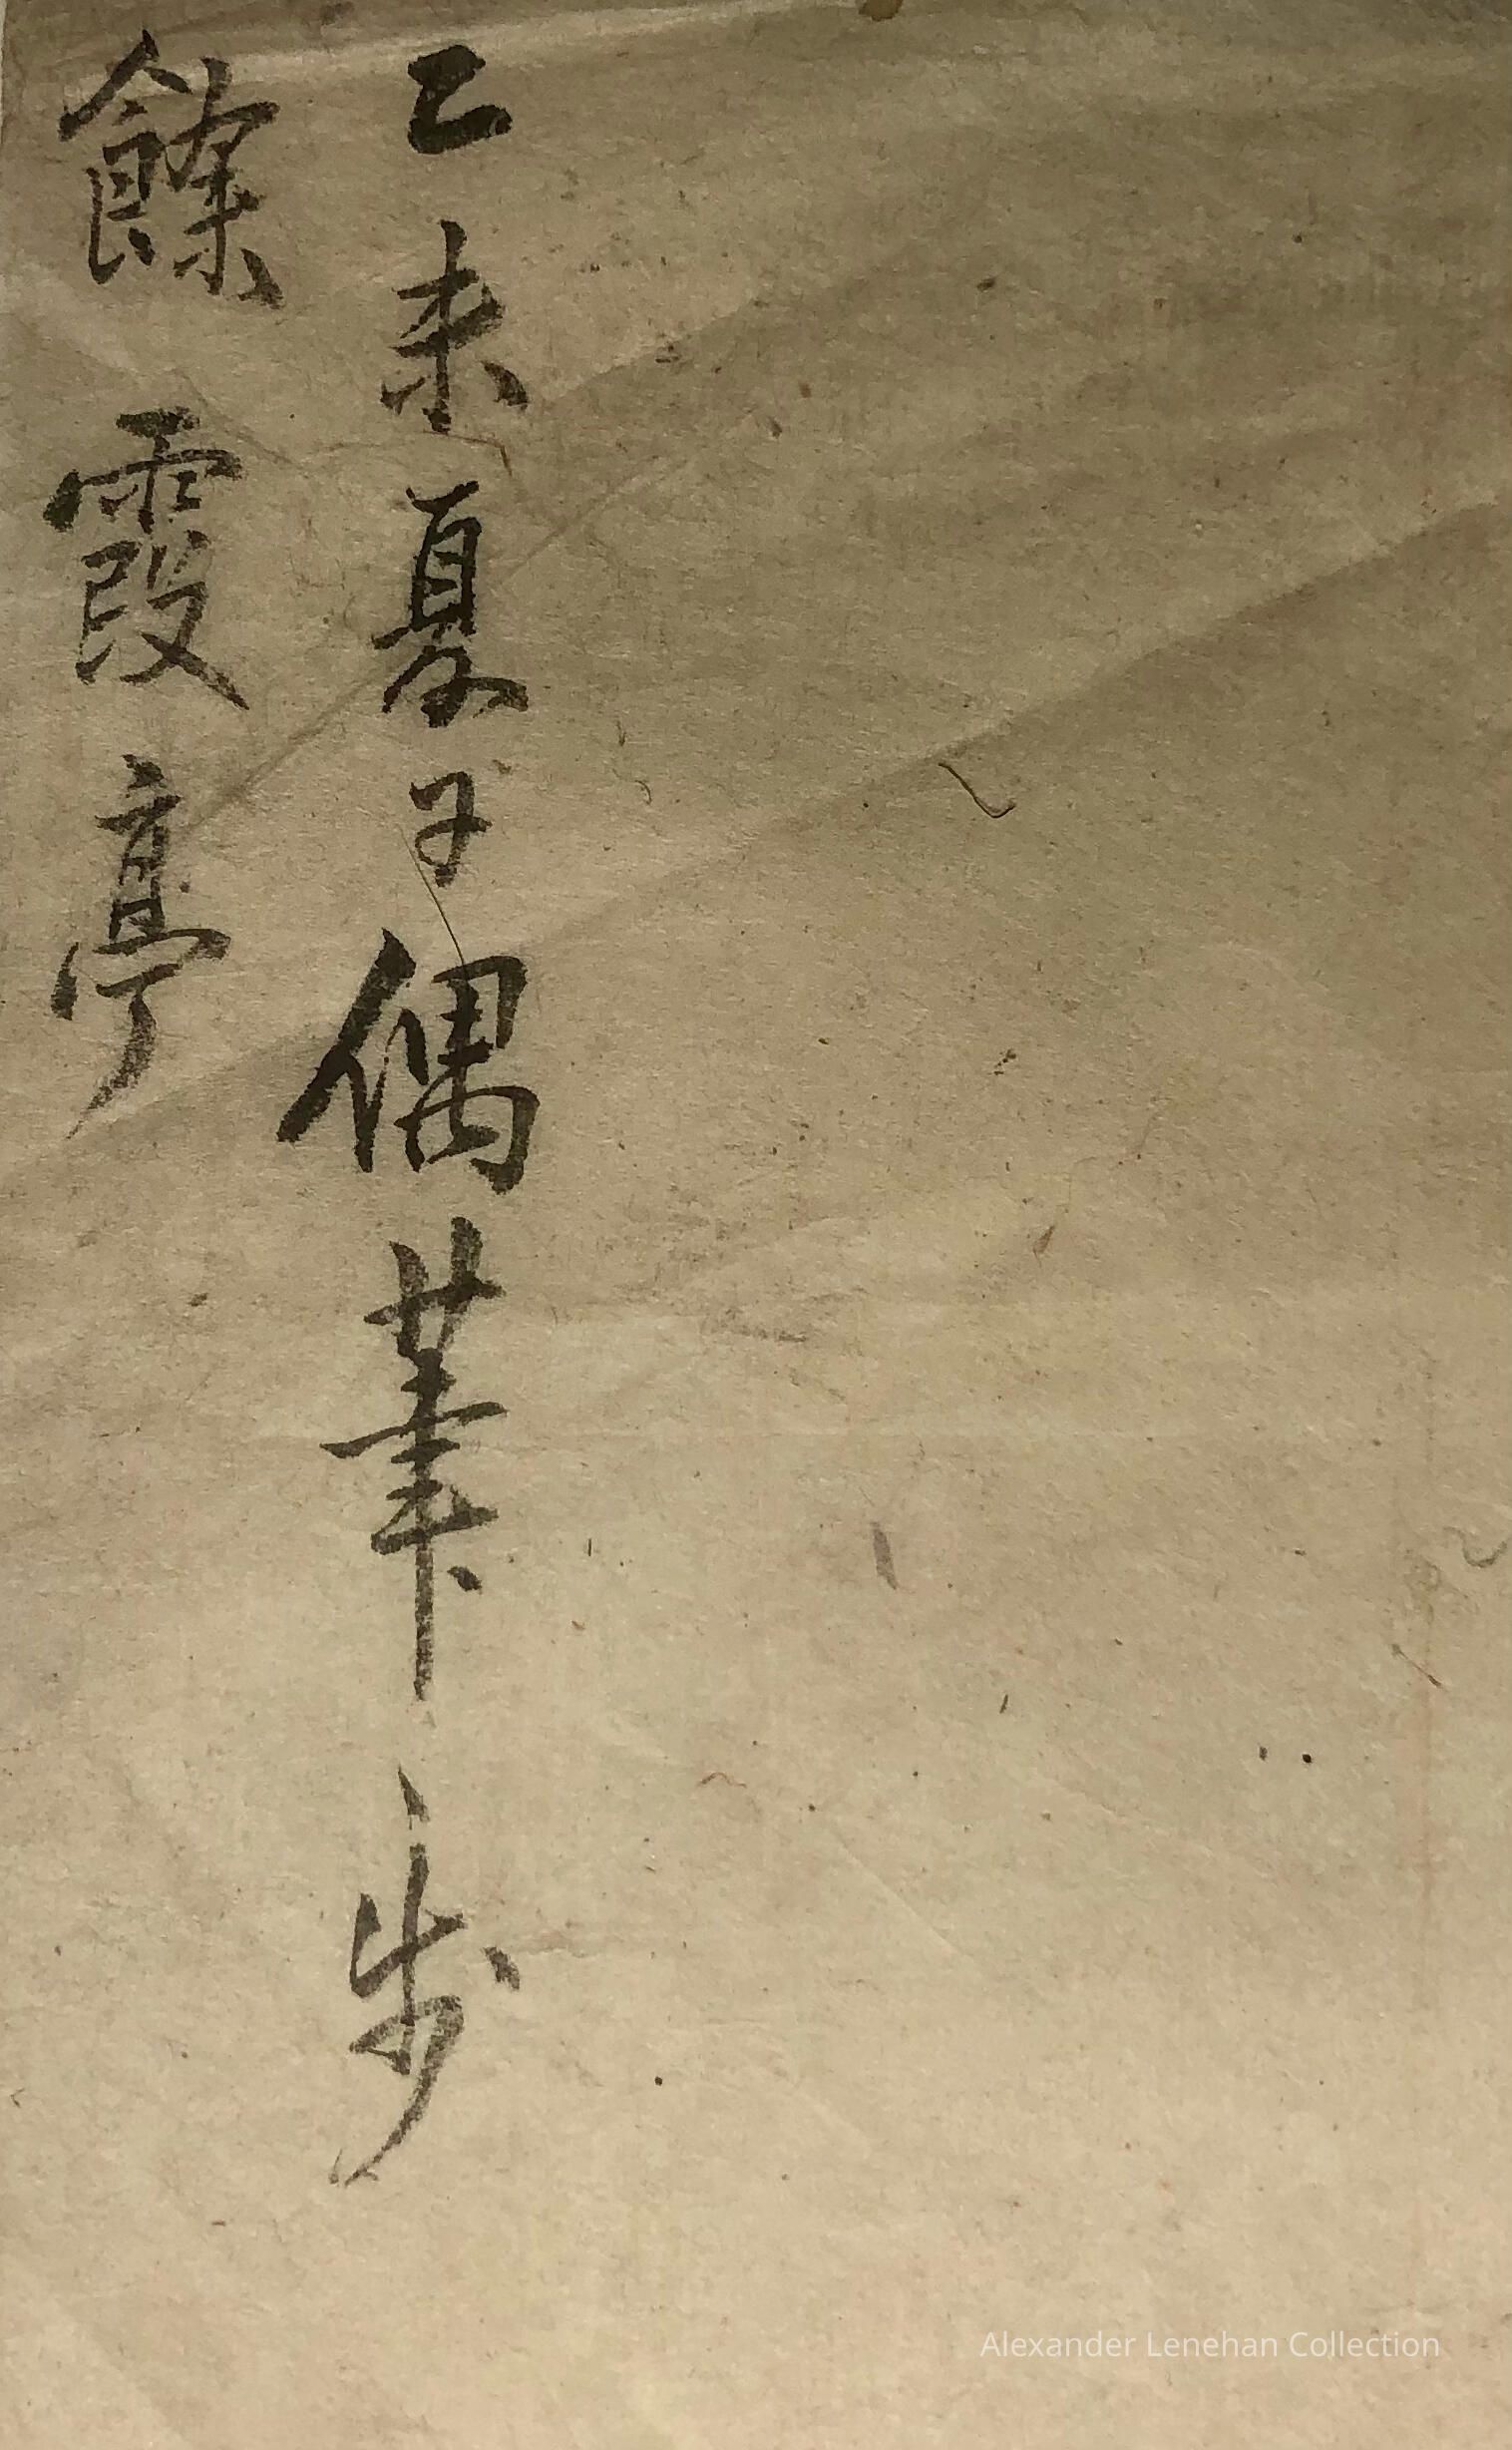 乙未夏子偶筆步
餘霞亭
Alexander Lenehan Collection